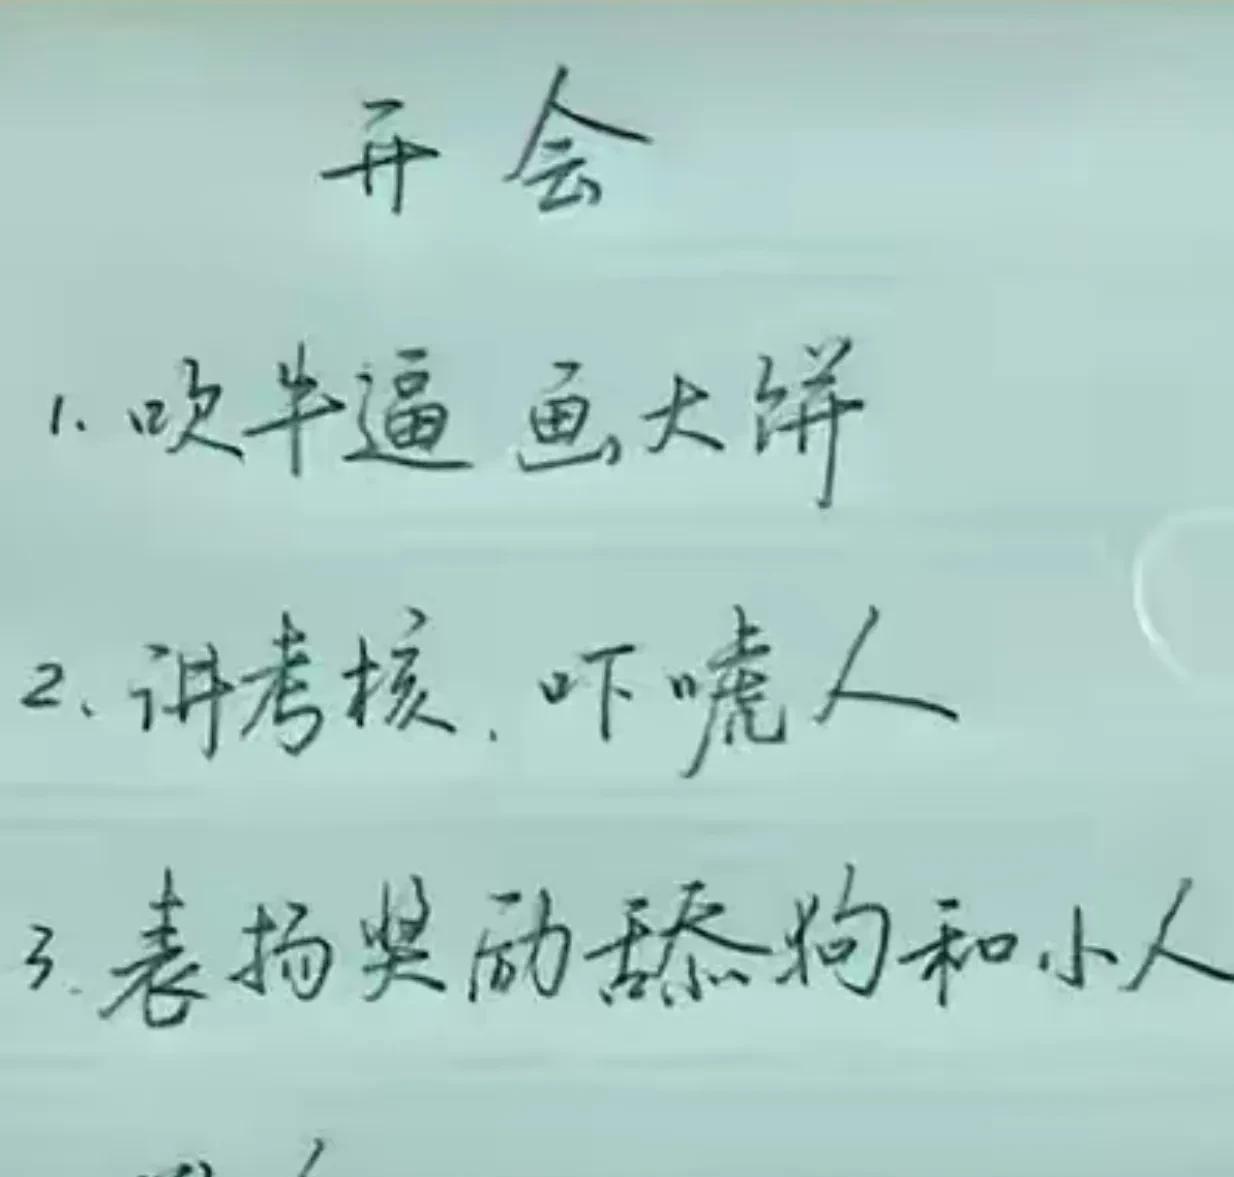 开会
1. 吹牛逼 画大饼
2、讲考核、吓唬人
3. 表扬奖励舔狗和小人